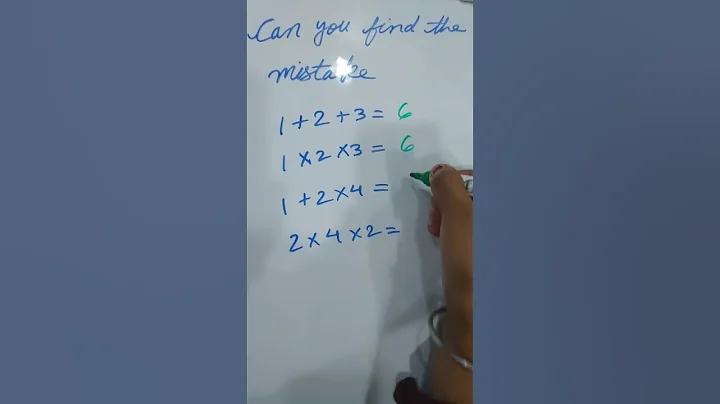 Can you find the
mistake
1 + 2 + 3 = 6
1 × 2 × 3 = 6
1 + 2 × 4 =
2 × 4 × 2 =